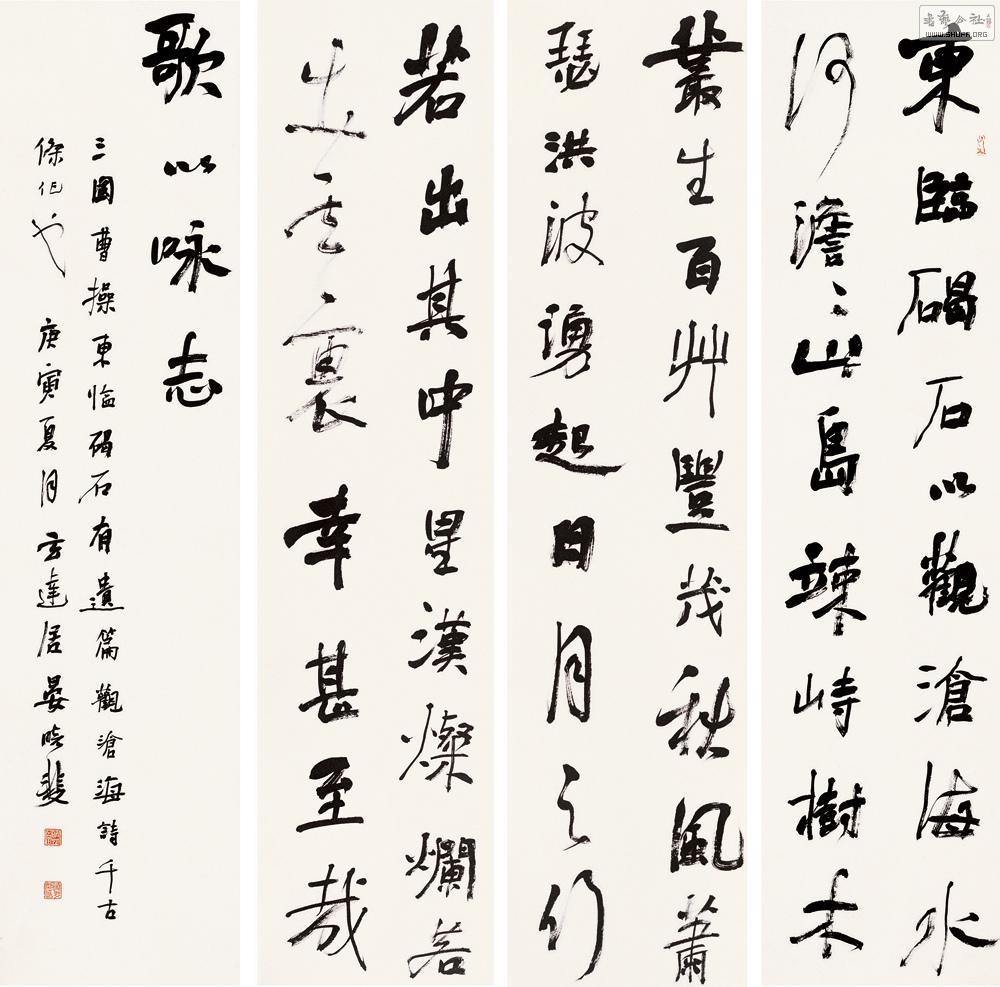 東臨碣石以觀滄海水
何澹〻山島竦峙樹木
叢生百艸豐茂秋風蕭
瑟洪波湧起日月之行
若出其中星漢燦爛若
出其裏幸甚至哉
歌以咏志
三國曹操東临碣石有遺篇觀滄海詩千古
傑作也 庚寅夏月 達居晏晓斐
WWW.SHUFF.ORG